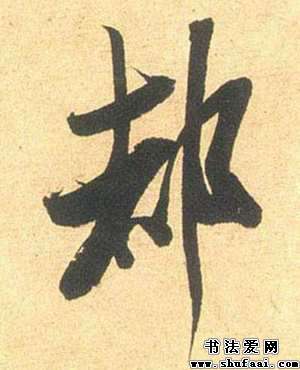 郝
书法爱网
www.shufaai.com